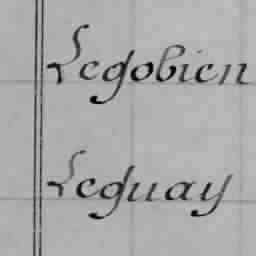 Legobien
Leguay